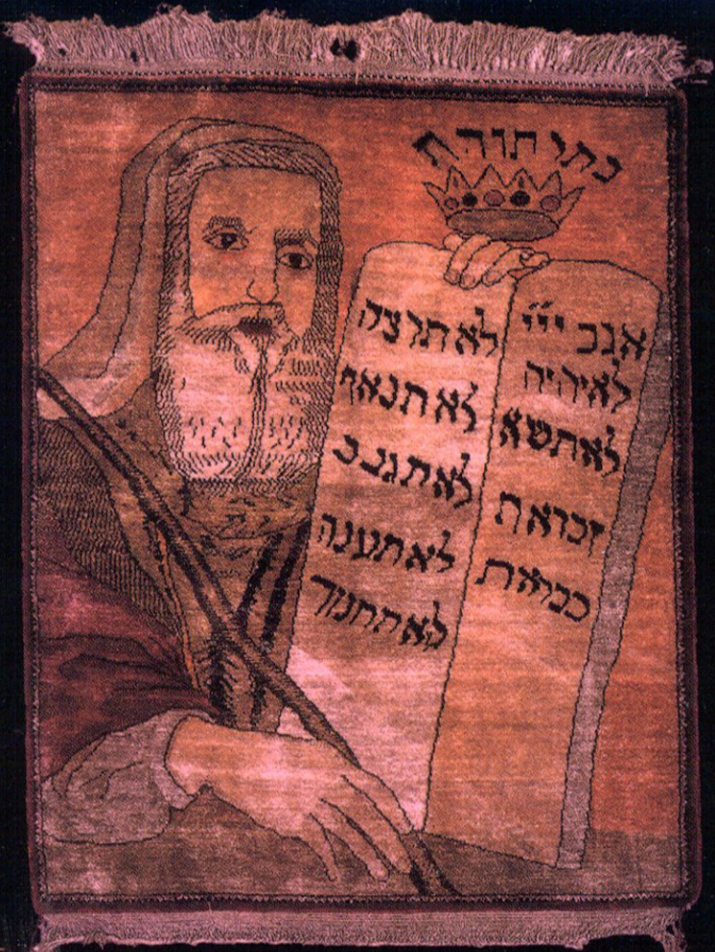 כתר תורה
אנכ ייי
לאיהיה
לאתשא
זכראת
כבדאת
לאתרצה
לאתנאף
לאתגנב
לאתענה
לאתחמוד